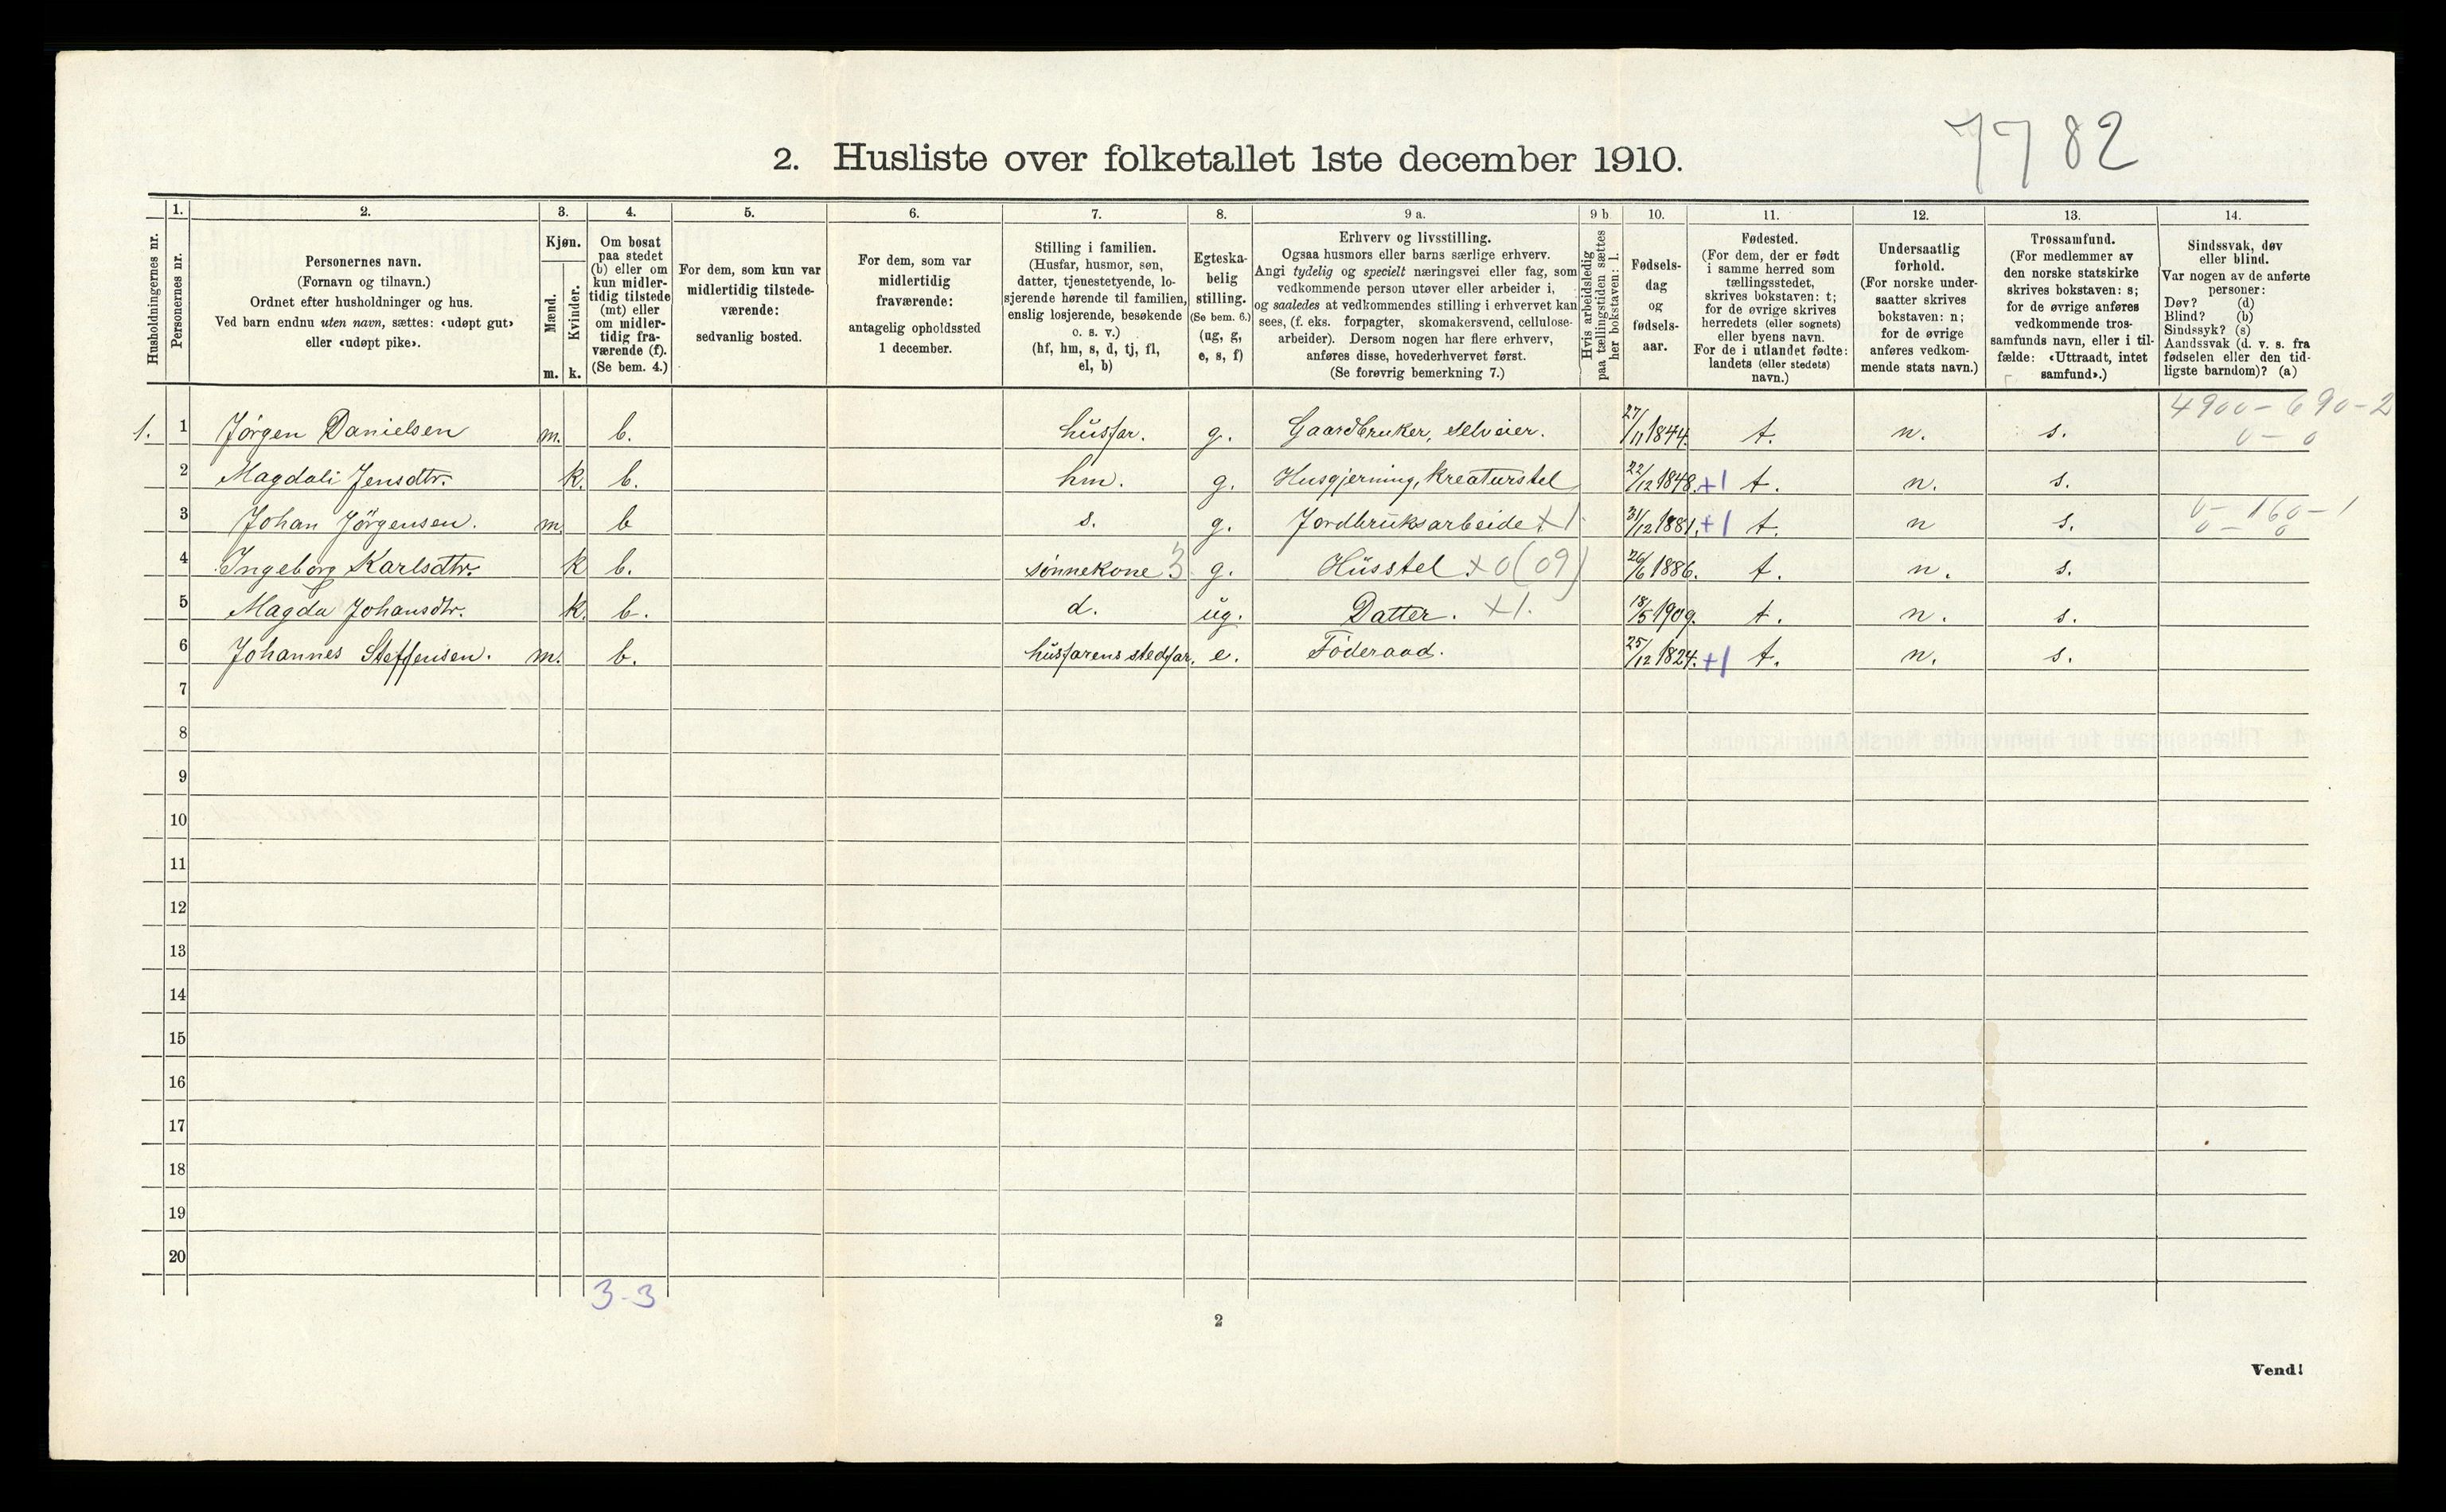 7782
2. Husliste over folketallet 1ste december 1910.
1. 2. 3. 4. 5. 6. 7. 8. 9 a. 9 b. 10. 11. 12. 13. 14.
Husholdningernes nr.
Personernes nr.
Personernes navn.
(Fornavn og tilnavn.)
Ordnet efter husholdninger og hus.
Ved barn endnu uten navn, sættes: «udøpt gut»
eller «udøpt pike».
Kjøn.
Mænd.
Kvinder.
m. k.
Om bosat
paa stedet
(b) eller om
kun midler-
tidig tilstede
(mt) eller
om midler-
tidig fra-
værende (f).
(Se bem. 4.)
For dem, som kun var
midlertidig tilstede-
værende:
sedvanlig bosted.
For dem, som var
midlertidig
fraværende:
antagelig opholdssted
1 december.
Stilling i familien.
(Husfar, husmor, søn,
datter, tjenestetyende, lo-
sjerende hørende til familien,
enslig losjerende, besøkende
o. s. v.)
(hf, hm, s, d, tj, fl,
el, b)
Egteska-
belig
stilling.
(Se bem. 6.)
(ug, g,
e, s, f)
Erhverv og livsstilling.
Ogsaa husmors eller barns særlige erhverv.
Angi tydelig og specielt næringsvei eller fag, som
vedkommende person utøver eller arbeider i,
og saaledes at vedkommendes stilling i erhvervet kan
sees, (f. eks. forpagter, skomakersvend, cellulose-
arbeider). Dersom nogen har flere erhverv,
anføres disse, hovederhvervet først.
(Se forøvrig bemerkning 7.)
Hvis arbeidsledig
paa tællingstiden sættes
her bokstaven: l.
Fødsels-
dag
og
fødsels-
aar.
Fødested.
(For dem, der er født
i samme herred som
tællingsstedet,
skrives bokstaven: t;
for de øvrige skrives
herredets (eller sognets)
eller byens navn.
For de i utlandet fødte:
landets (eller stedets)
navn.)
Undersaatlig
forhold.
(For norske under-
saatter skrives
bokstaven: n;
for de øvrige
anføres vedkom-
mende stats navn.)
Trossamfund.
(For medlemmer av
den norske statskirke
skrives bokstaven: s;
for de øvrige anføres
vedkommende tros-
samfunds navn, eller i til-
fælde: «Uttraadt, intet
samfund».)
Sindssvak, døv
eller blind.
Var nogen av de anførte
personer:
Døv? (d)
Blind? (b)
Sindssyk? (s)
Aandssvak (d. v. s. fra
fødselen eller den tid-
ligste barndom)? (a)
4900-690-2
1. 1 Jörgen Danielsen m. b. husfar. g. Gaardbruker, selveier. 27/11 1844. t. n. s. 0-0
2 Magdali Jensdtr. k. b. hm. g. Husgjerning, kreaturstel 22/12 1848. +1 t. n. s.
3 Johan Jörgensen. m. b s. g. Jordbruksarbeide. x1. 31/12 1881. +1 t. n s. 0-160-1
0-0
4 Ingeborg Karlsdtr. k b. sønnekone 3 g. Husstel x0(09) 26/6 1886. t. n. s.
5 Magda Johansdtr. k. b. d. ug. Datter. x1. 18/5 1909. t. n. s.
6 Johannes Steffensen. m. b. husfarens stedfar. e. Föderaad. 25/12 1824. +1 t. n. s.
7
8
9
10
11
12
13
14
15
16
17
18
19
20
3-3
2
Vend!